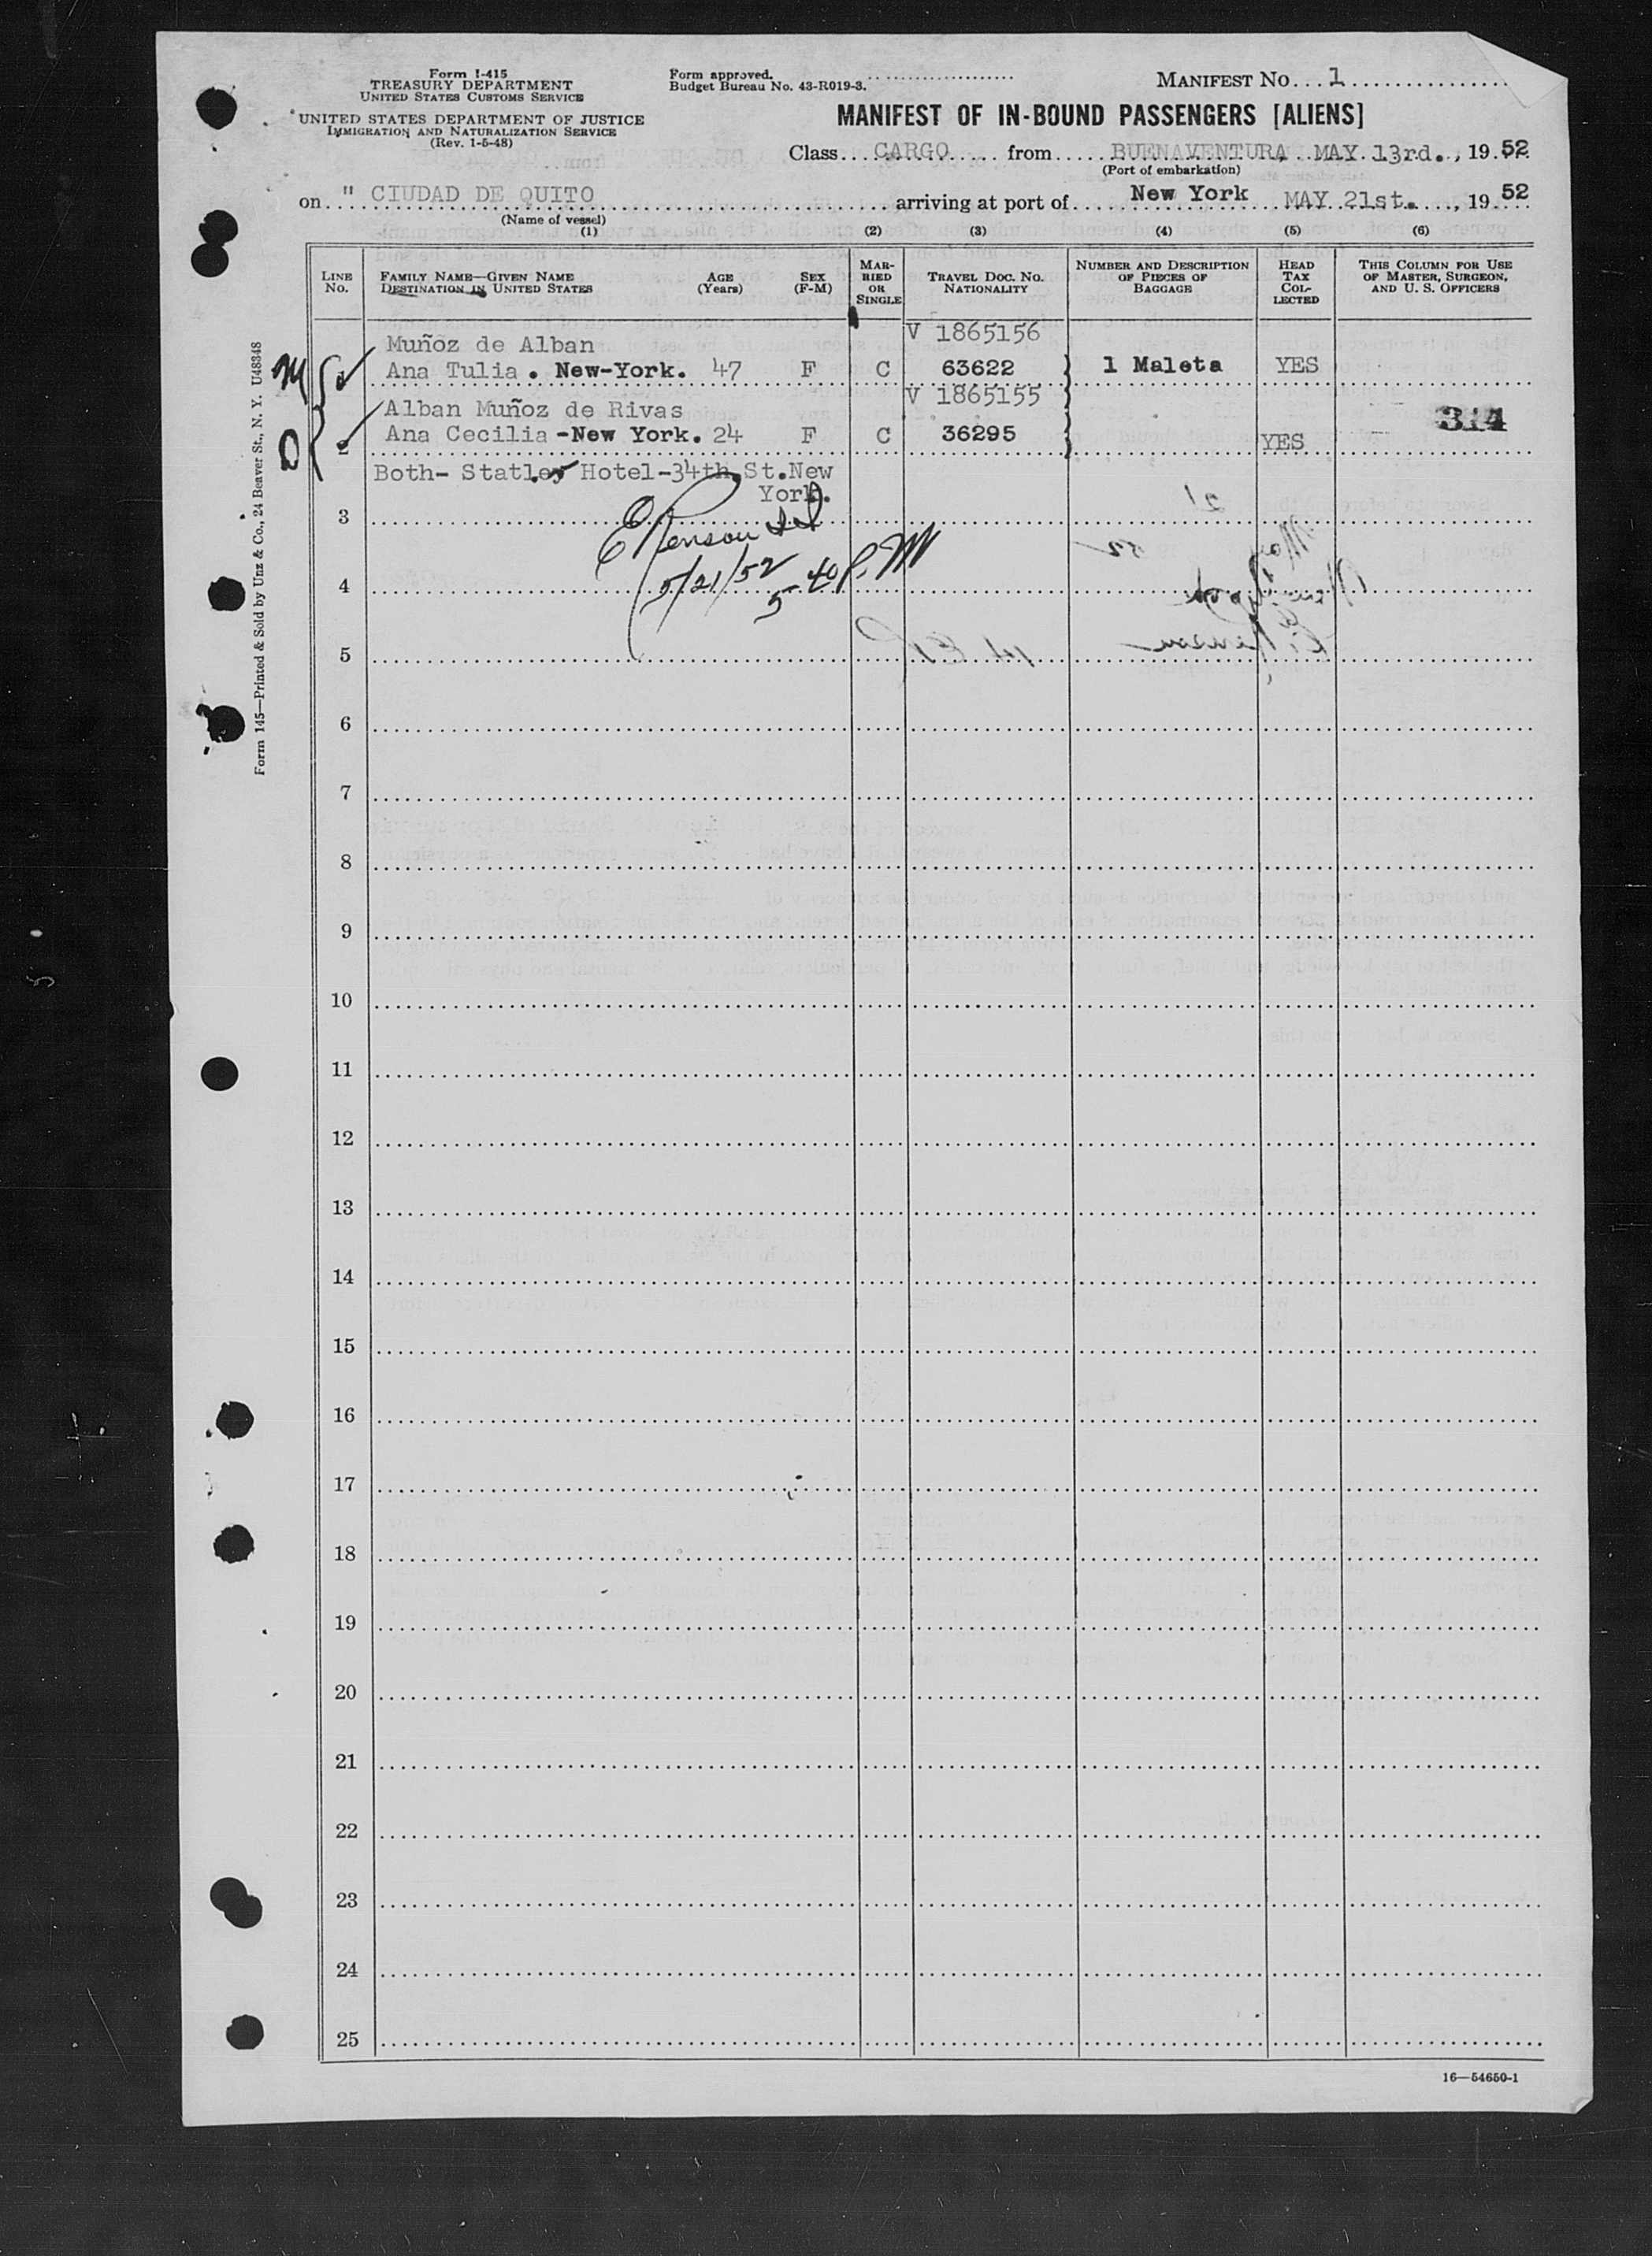 Form I-415
TREASURY DEPARTMENT
UNITED STATES CUSTOMS SERVICE
UNITED STATES DEPARTMENT OF JUSTICE
IMMIGRATION AND NATURALIZATION SERVICE
(Rev. 1-5-48)
Form approved.
Budget Bureau No. 43-R019-3.
MANIFEST NO. 1
MANIFEST OF IN-BOUND PASSENGERS [ALIENS]
Class CARGO from BUENAVENTURA MAY 13rd., 1952
(Port of embarkation)
on " CIUDAD DE QUITO arriving at port of New York MAY 21st., 1952
(Name of vessel)
(1) (2) (3) (4) (5) (6)
LINE NO.
FAMILY NAME—GIVEN NAME
DESTINATION IN UNITED STATES
AGE (Years)
SEX (F-M)
MARRIED OR SINGLE
TRAVEL DOC. NO. NATIONALITY
NUMBER AND DESCRIPTION OF PIECES OF BAGGAGE
HEAD TAX COLLECTED
THIS COLUMN FOR USE OF MASTER, SURGEON, AND U. S. OFFICERS
Muñoz de Alban V 1865156
Ana Tulia . New-York. 47 F C 63622 1 Maleta YES
Alban Muñoz de Rivas V 1865155
2 Ana Cecilia -New York. 24 F C 36295 YES 314
Both- Statler Hotel-34th St.New
York.
3
5/21/52 5 40 P.M
4
5
6
7
8
9
10
11
12
13
14
15
16
17
18
19
20
21
22
23
24
25
16—54650-1
Form 145—Printed & Sold by Unz & Co., 24 Beaver St., N. Y. U48348